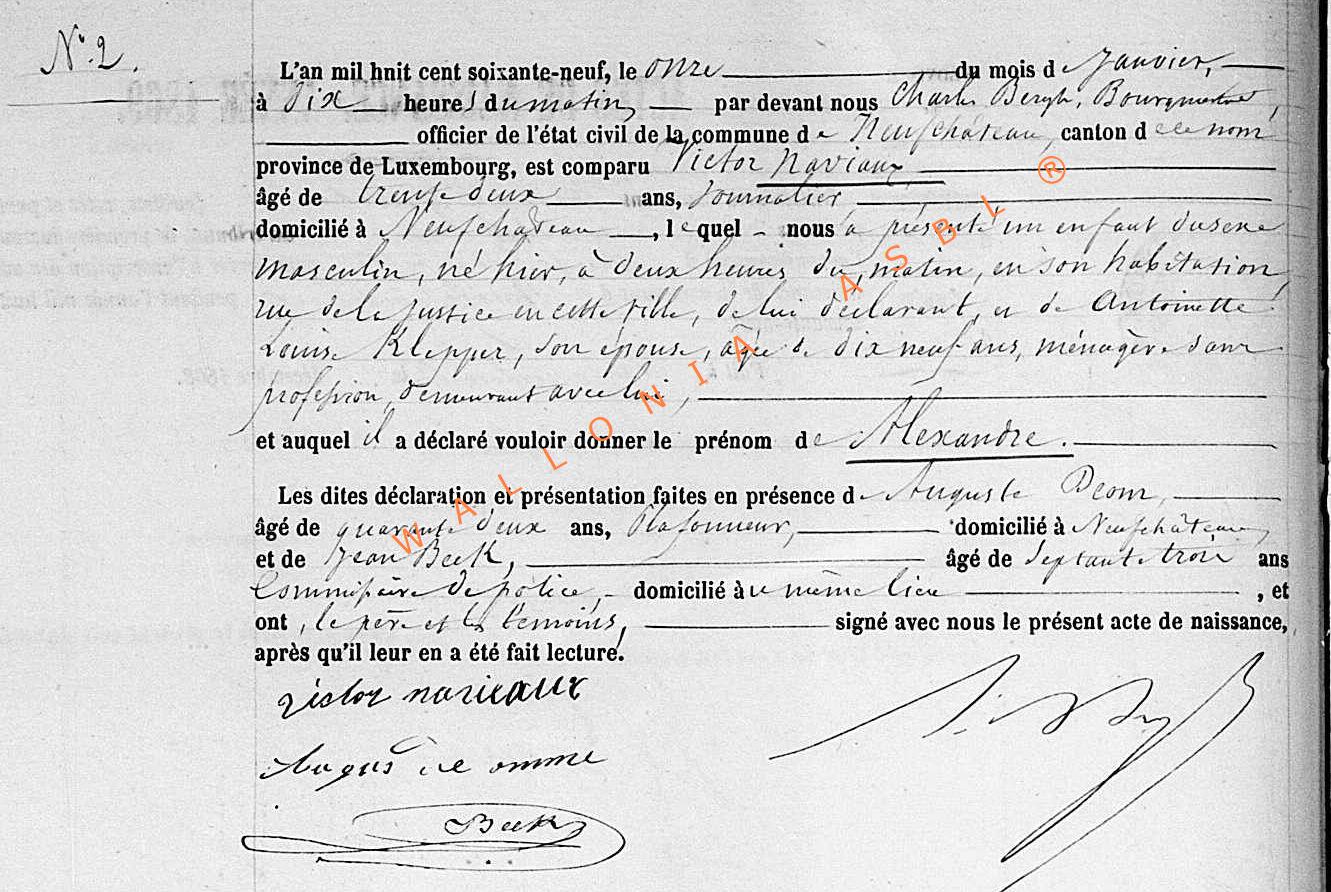 N° 2.
L'an mil huit cent soixante-neuf, le onze du mois de Janvier,
à dix heures du matin, par devant nous Charles Bergh, Bourgmestre,
officier de l'état civil de la commune de Neufchâteau, canton de ce nom,
province de Luxembourg, est comparu Victor Naviaux,
âgé de trente deux ans, Journalier,
domicilié à Neufchâteau, lequel nous a présenté un enfant du sexe
masculin, né hier, à deux heures du matin, en son habitation,
rue de la Justice en cette ville, de lui déclarant, et de Antoinette
Louise Klepper, son épouse, âgée de dix neuf ans, ménagère dont
profession, demeurant avec lui,
et auquel il a déclaré vouloir donner le prénom de Alexandre.
Les dites déclaration et présentation faites en présence de Auguste Deom,
âgé de quarante deux ans, Plafonneur, domicilié à Neufchâteau,
et de Jean Beck, âgé de septante trois ans
Commissaire de police, domicilié au même lieu, et
ont, le père et les témoins, signé avec nous le présent acte de naissance,
après qu'il leur en a été fait lecture.
victor naviaux
August de omme
Beck
WALLONIA ASBL ®